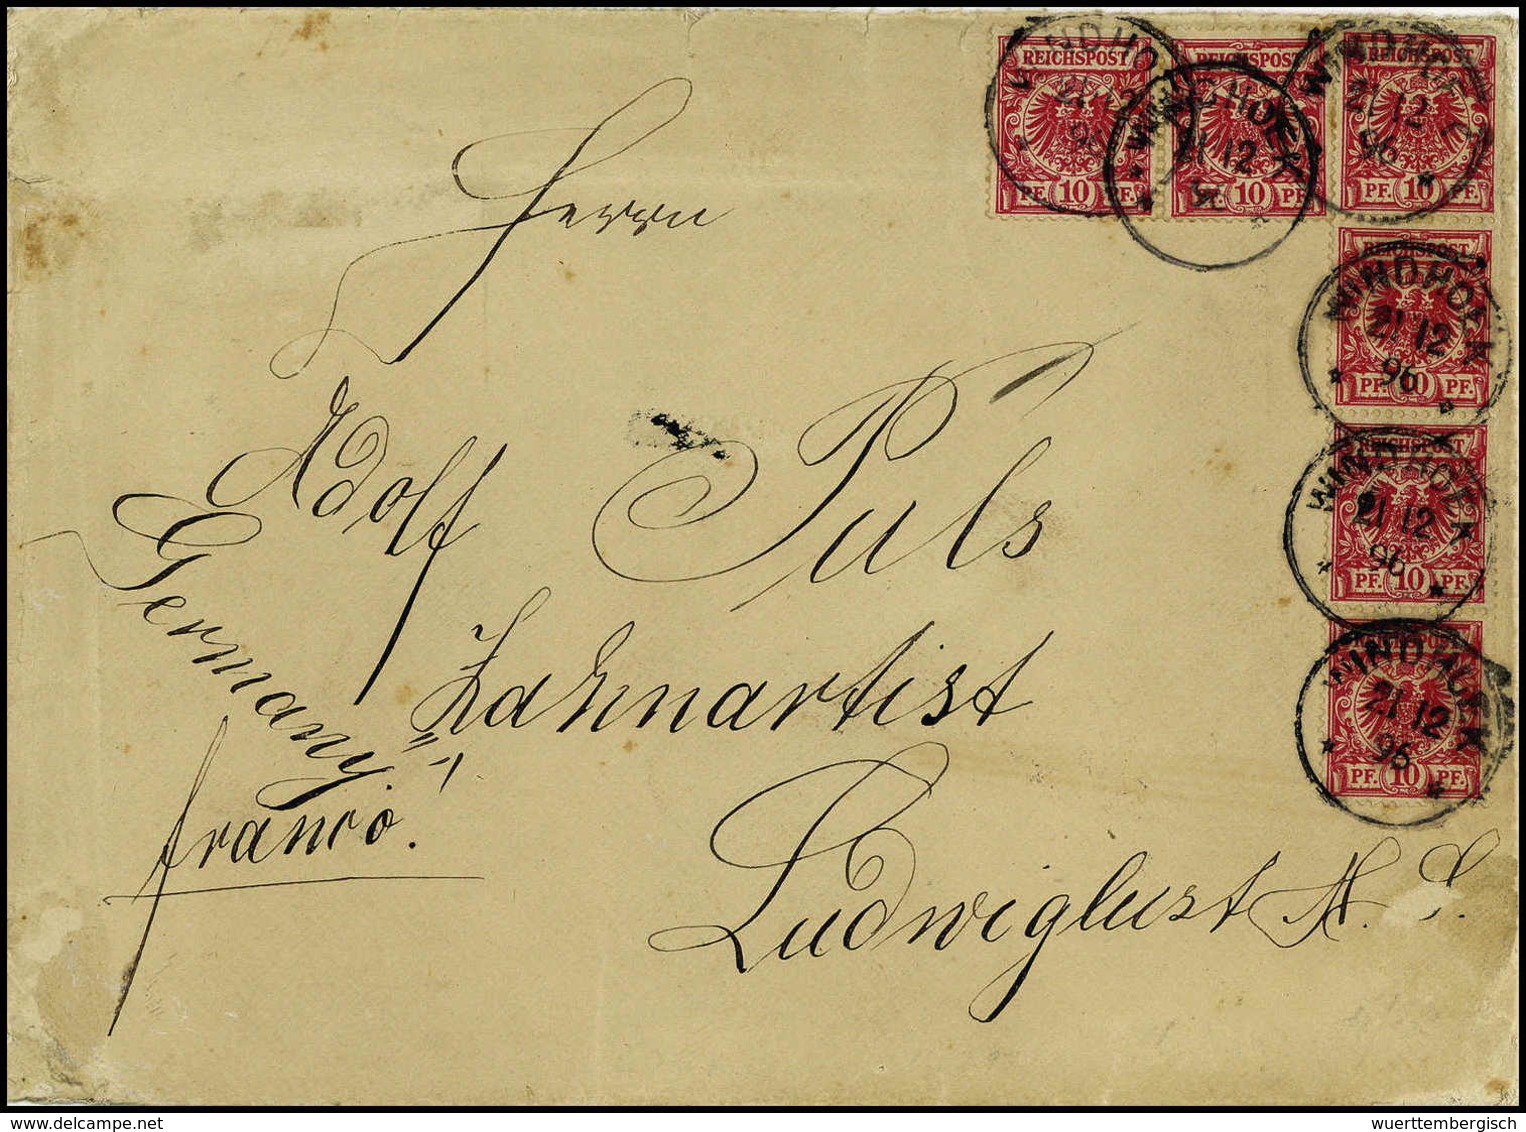 REICHSPOST REICHSPOST REICHSPOST
PF. 10 PF. PF. 10 PF. PF. 10 PF.
WINDHOEK 21 12 96
WINDHOEK 21 12 96
WINDHOEK 21 12 96
REICHSPOST
PF. 10 PF.
WINDHOEK 21 12 96
REICHSPOST
PF. 10 PF.
WINDHOEK 21 12 96
REICHSPOST
PF. 10 PF.
WINDHOEK 21 12 96
Herrn
Adolf Puls
Zahnartist
Ludwiglust M. S.
Germany
franco.
wuerttembergisch